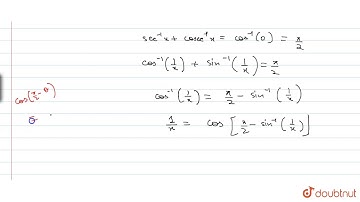 sec⁻¹x + cosec⁻¹x = cos⁻¹(0) = π/2
cos⁻¹(1/x) + sin⁻¹(1/x) = π/2
cos⁻¹(1/x) = π/2 - sin⁻¹(1/x)
1/x = cos[π/2 - sin⁻¹(1/x)]
cos(π/2 - θ)
θ
doubtnut